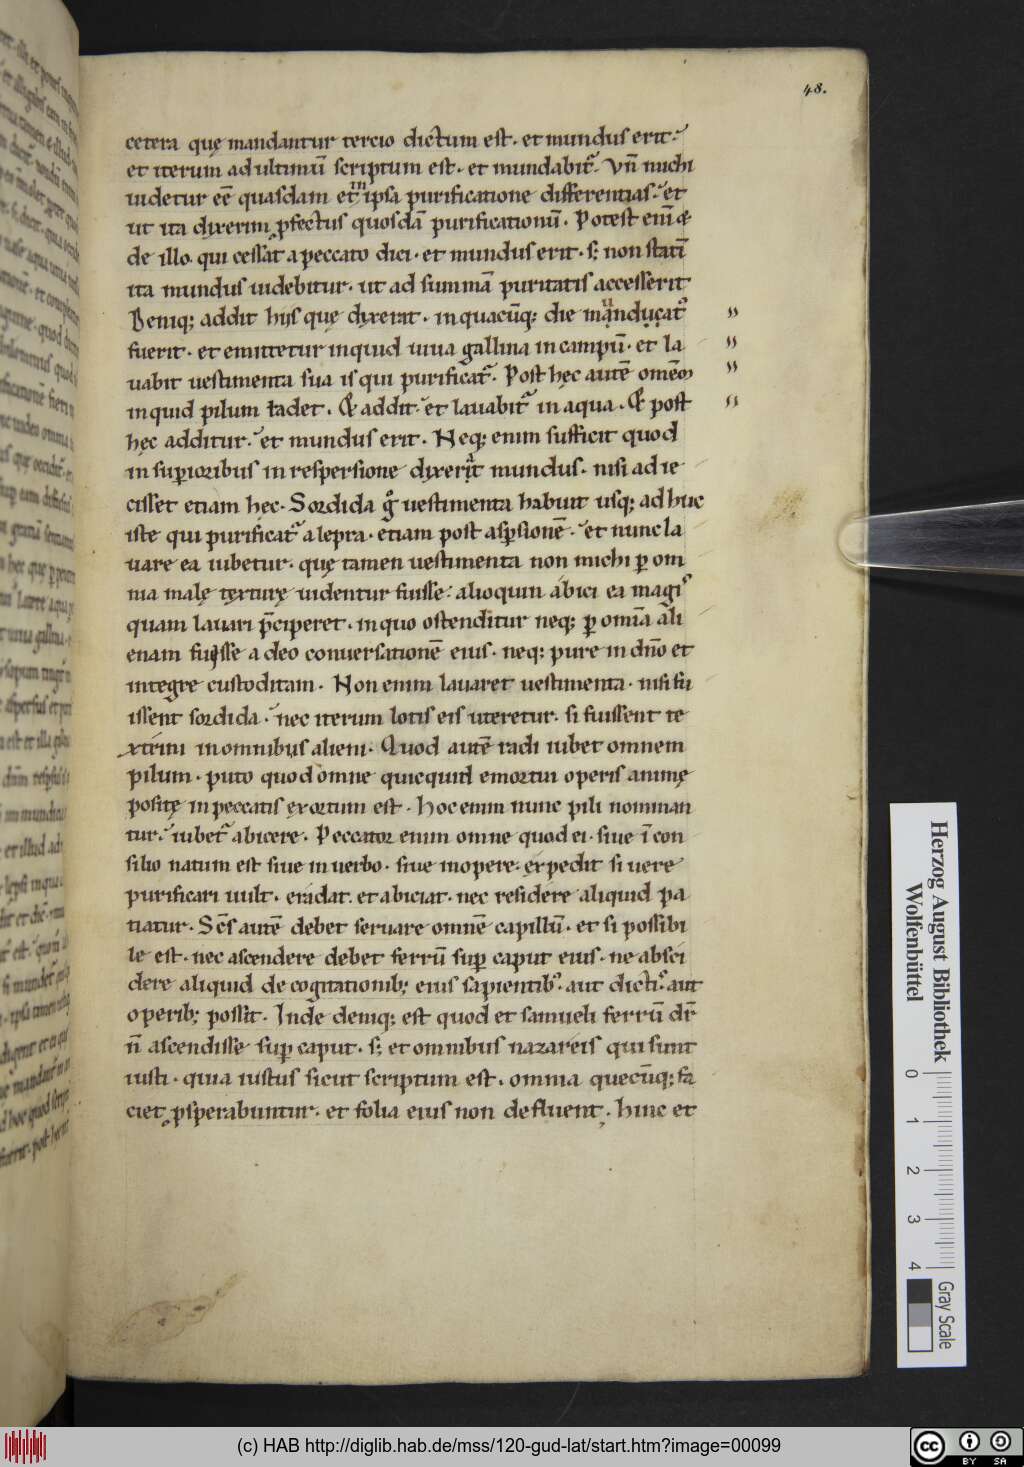 48.
cetera quę mandantur tercio dictum est. et mundus erit.
et iterum ad ultimū scriptum est. et mundabit᷑. Vn̄ michi
uidetur eē quasdam et in ipsa purificatione differentias. et
ut ita dixerim pfectus quosdā purificationū. Potest enī &
de illo qui cessat a peccato dici. et mundus erit. s; non statī
ita mundus uidebitur. ut ad summā puritatis accesserit
Deniq; addit hijs quę dixerat. in quacūq; die manducat᷑
fuerit. et emittetur inquid uiua gallina in campū. et la
uabit uestimenta sua is qui purificat᷑. Post hęc autē omēm
inquid pilum radet. & addit. et lauabit᷑ in aqua. & post
hęc additur. et mundus erit. Neq; enim sufficit quod
in supioribus in respersione dixerat mundus. nisi adie
cisset etiam hec. Sordida g̊ uestimenta habuit usq; ad huc
iste qui purificat᷑ a lepra. etiam post aspsionē. et nunc la
uare ea iubetur. quę tamen uestimenta non michi p om
nia malę texturę uidentur fuisse. alioquin abici ea magis
quam lauari p̄ciperet. in quo ostenditur neq; p omīa ali
enam fuisse a deo conuersationē eius. neq; pure in dn̄o et
integre custoditam. Non enim lauaret uestimenta. nisi fu
issent sordida. nec iterum lotis eis uteretur. si fuissent te
xtrini in omnibus alieni. Quod autē radi iubet omnem
pilum. puto quod omne quicquid emortui operis animę
positę in peccatis exortum est. hoc enim nunc pili nominan
tur. iubet᷑ abicere. Peccator enim omne quod ei siue ī con
silio natum est siue in uerbo. siue in opere. expedit si uere
purificari uult. eradat. et abiciat. nec residere aliquid pa
tiatur. Sc̄s autē debet seruare omnē capillū. et si possibi
le est. nec ascendere debet ferrū sup caput eius. ne absci
dere aliquid de cogitationib; eius sapientib᷒. aut dictis. aut
operib; possit. Inde deniq; est quod et samueli ferrū dr̄
n̄ ascendisse sup caput. s; et omnibus nazareis qui sunt
iusti. quia iustus sicut scriptum est. omnia quecūq; fa
ciet psperabuntur. et folia eius non defluent. hinc et
Herzog August Bibliothek
Wolfenbüttel
0 1 2 3 4
Gray Scale
(c) HAB http://diglib.hab.de/mss/120-gud-lat/start.htm?image=00099
cc BY SA